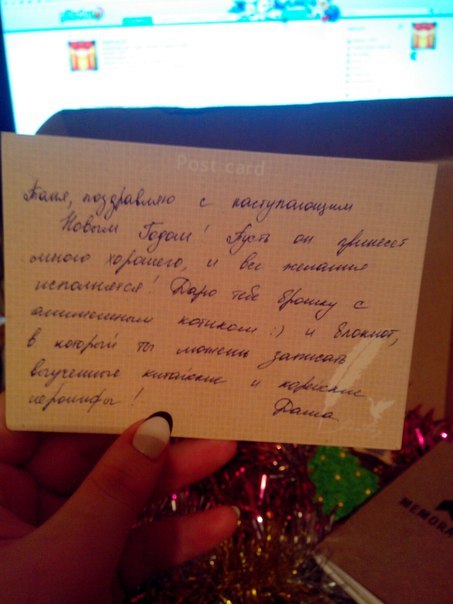 Post card
Таня, поздравляю с наступающим
Новым Годом! Пусть он принесет
много хорошего, и все желания
исполнятся! Дарю тебе брошку с
анимешным котиком :) и блокнот,
в который ты можешь записать
выученные китайские и корейские
иероглифы!
Даша
MEMORA